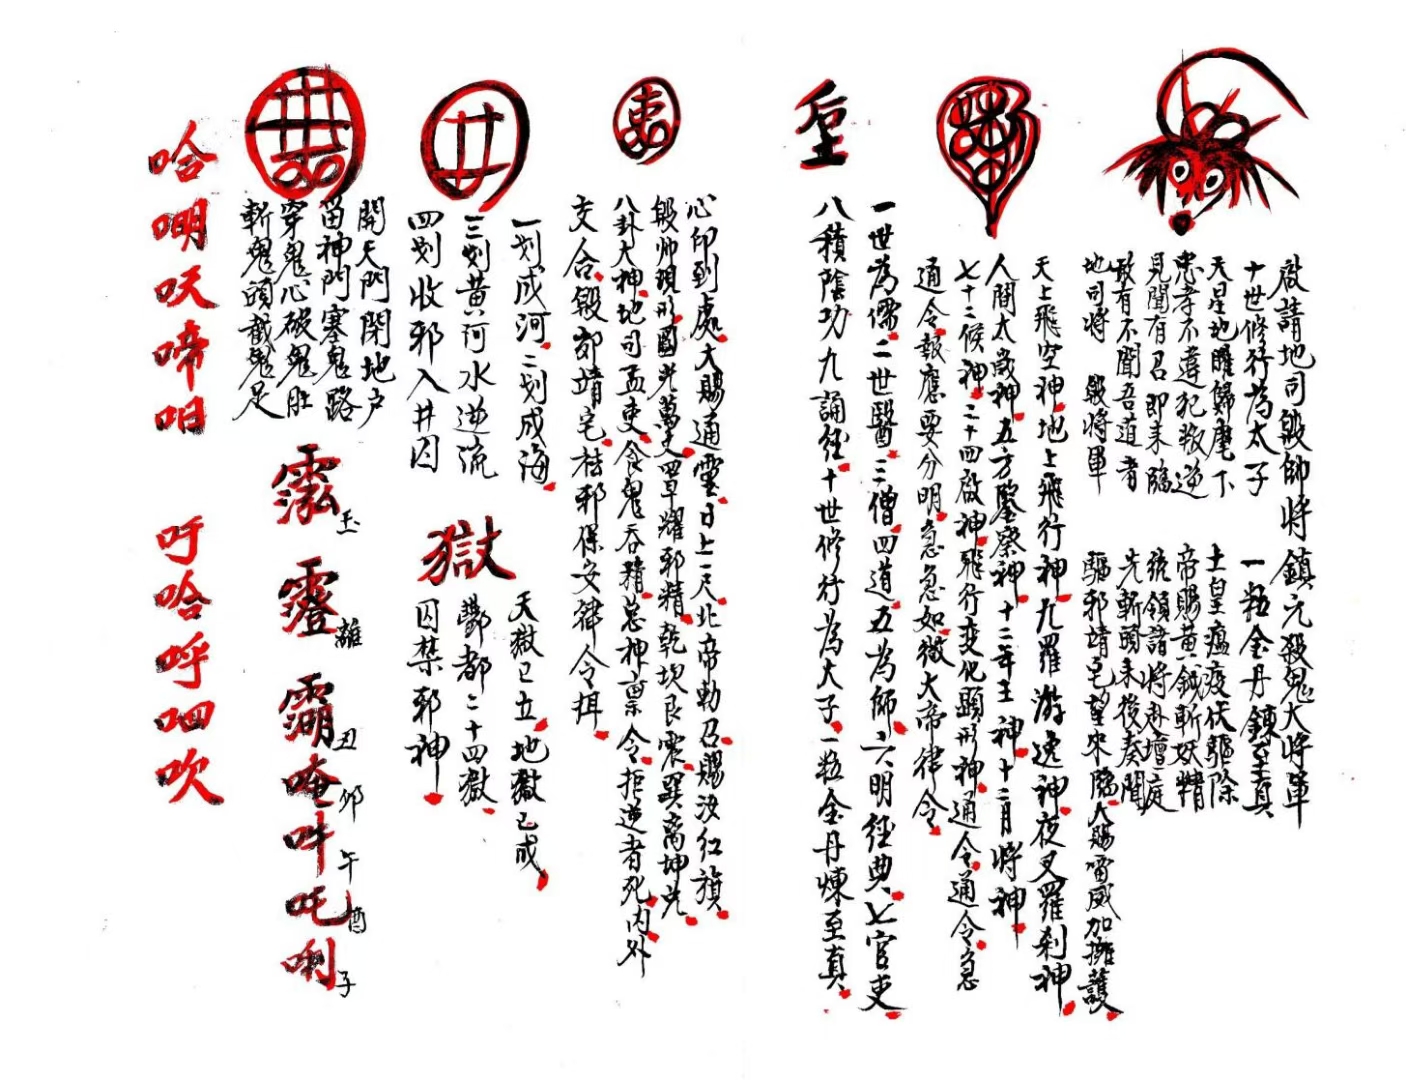 啟請地司殷帥將鎮元殺鬼大將軍
十世修行為太子
一粒金丹鍊至真
天星地曜歸麾下
忠孝不違犯叛逆
見聞有召即来臨
敢有不聞吾道者
地司將 殷將軍
土皇瘟疫伏驅除
帝賜黃鉞斬妖精
統領諸將赴壇庭
先斬頭来後奏聞
驅邪靖宅望来臨
大賜雷威加擁護
天上飛空神地上飛行神九羅游逸神夜叉羅刹神
人間太歲神五方鑒察神十二年王神十二月將神
七十二候神二十四啟神飛行变化顯形神通令通令急
通令報應要分明急急如微大帝律令
𡊨
一世為儒二世醫三僧四道五為師六明經典七官吏
八積陰功九誦经十世修行為太子一粒金丹煉至真
心印到處大賜通靈日上一尺北帝勅召賜汝红旗
殷帅現形圓光萬丈罩耀邪精乾坎艮震巽离坤兑
八卦大神地司孟吏食鬼吞精惡神禀令拒逆者死内外
交合殷郊靖宅祛邪保安律令揖
一划成河二划成海
三划黄河水逆流
四划收邪入井囚
獄
天獄已立地獄已成
酆都二十四獄
囚禁邪神
開天門閉地户
留神門塞鬼路
穿鬼心破鬼肚
斬鬼頭截鬼足
玉
靈 離
霸 丑
唵 卯
吽 午
吒 酉
唎 子
哈
嘲
呋
啼
呾
吁
哈
呼
呬
吹